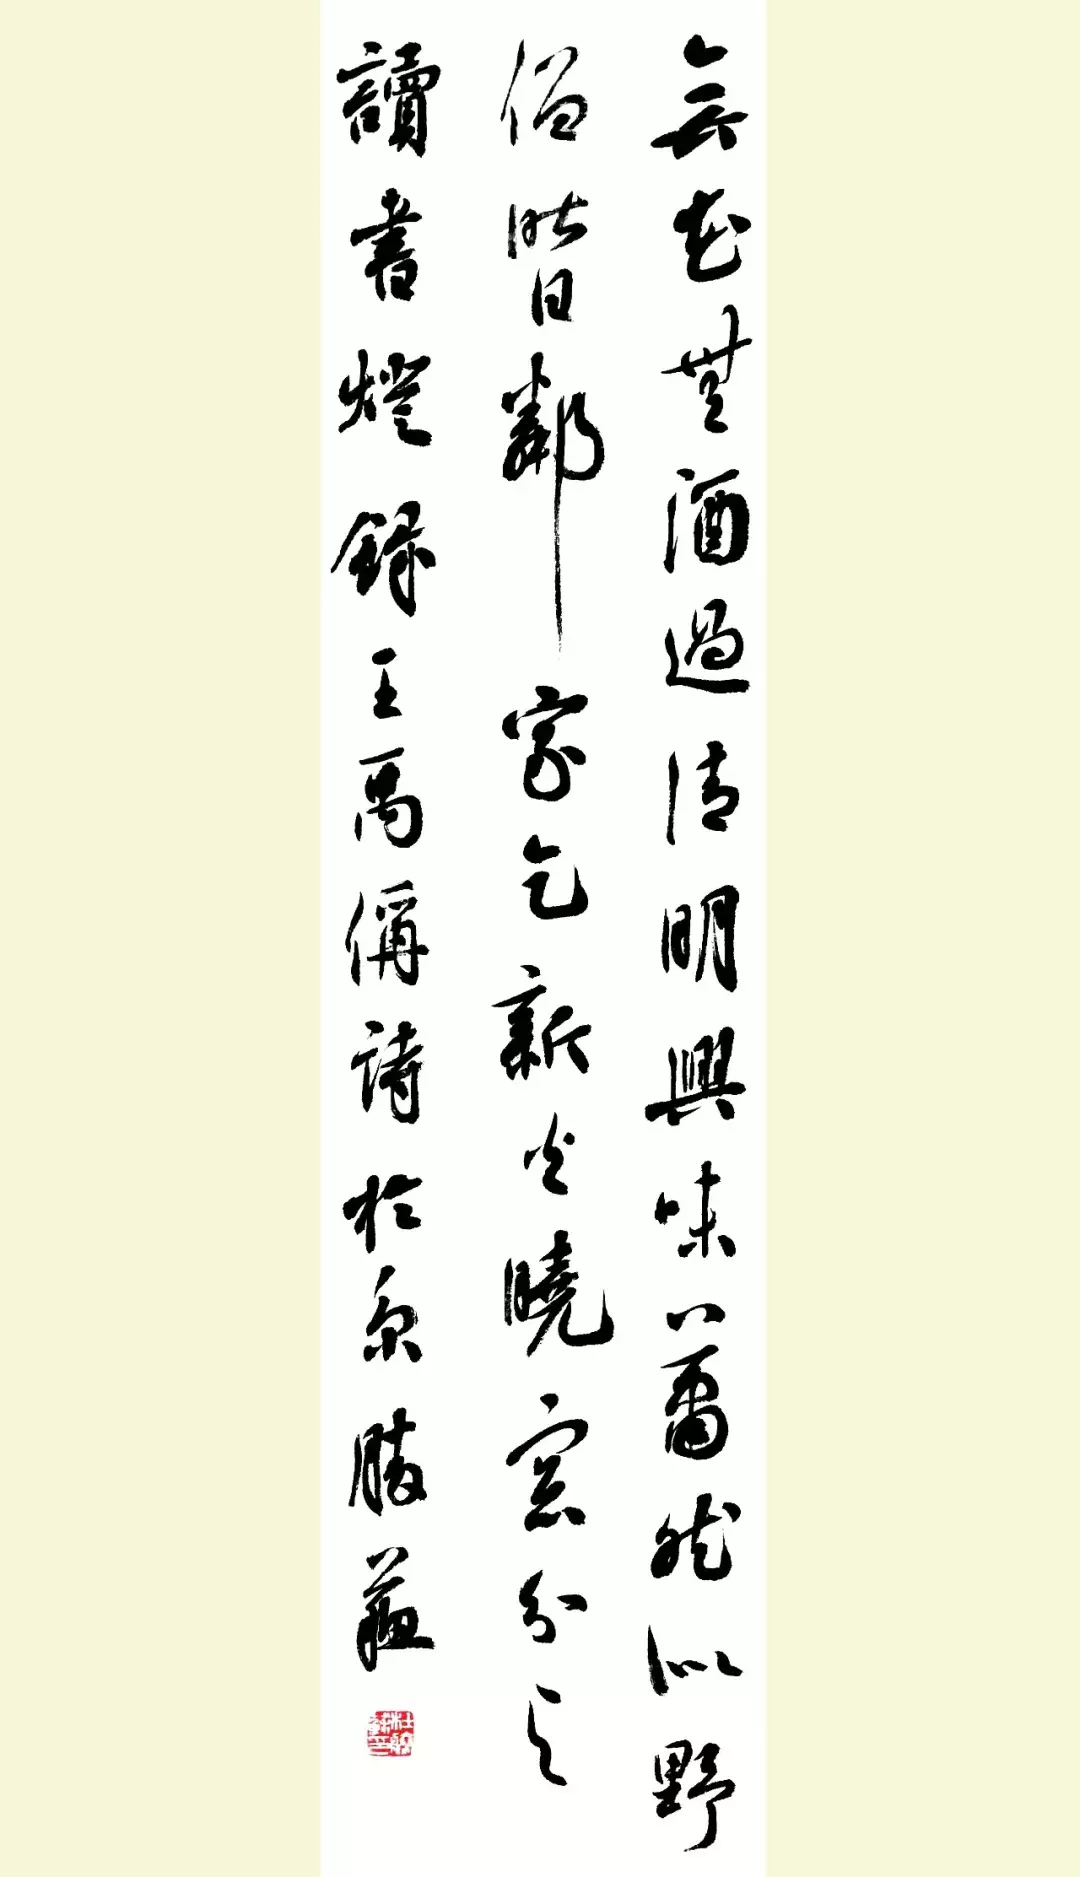 無花無酒過清明興味蕭然似野
僧昨日鄰家乞新火曉窗分與
讀書燈錄王禹偁詩於京勝蘇